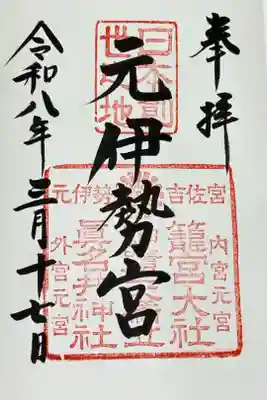 奉拝
元伊勢宮
令和八年三月十七日
日本創
世の地
内宮元宮
籠宮大社
吉佐宮
元伊勢
眞名井神社
外宮元宮